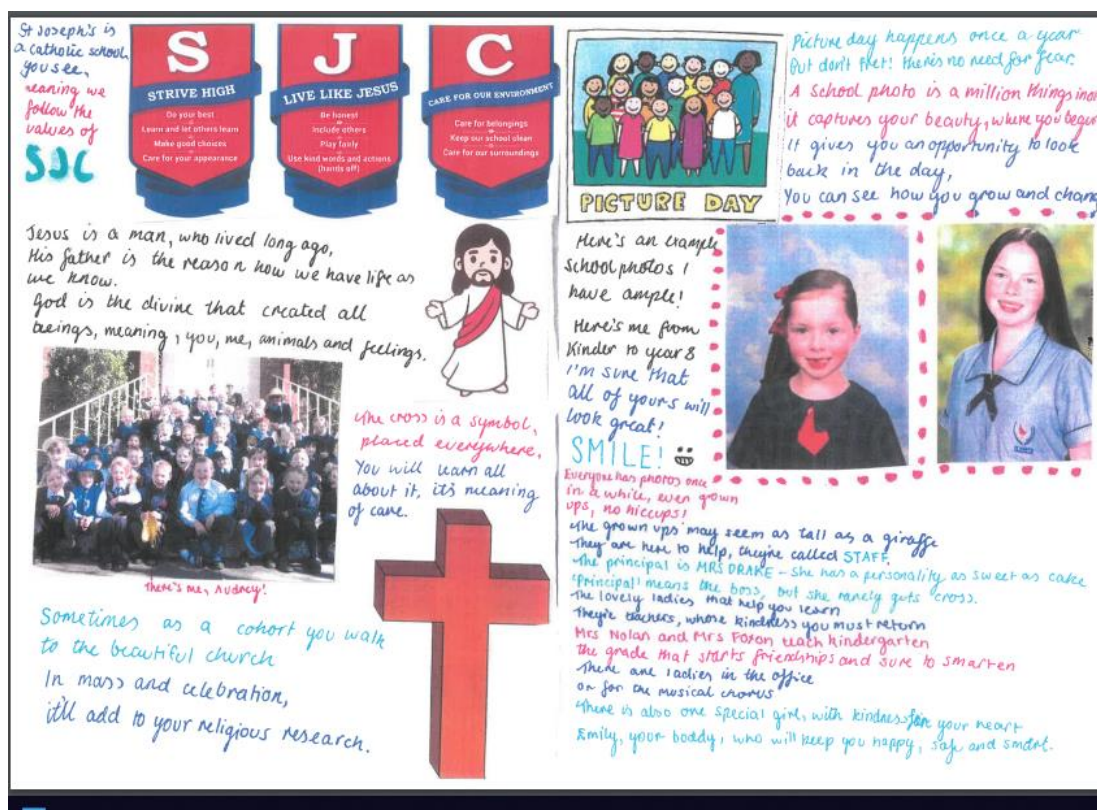 St Joseph's is
a catholic school,
you see,
meaning we
follow the
values of
SJC
S
STRIVE HIGH
Do your best
Learn and let others learn
Make good choices
Care for your appearance
J
LIVE LIKE JESUS
Be honest
Include others
Play fairly
Use kind words and actions
(hands off)
C
CARE FOR OUR ENVIRONMENT
Care for belongings
Keep our school clean
Care for our surroundings
Jesus is a man, who lived long ago,
His father is the reason how we have life as
we know.
God is the divine that created all
beings, meaning, you, me, animals and feelings.
There's me, Audrey!
The cross is a symbol,
placed everywhere.
You will learn all
about it, it's meaning
of care.
Sometimes as a cohort you walk
to the beautiful church
In mass and celebration,
it'll add to your religious research.
PICTURE DAY
Picture day happens once a year
But don't fret! there's no need for fear.
A school photo is a million things in
it captures your beauty, where you
It gives you an opportunity to look
back in the day,
You can see how you grow and chang
Here's an example
school photos I
have ample!
Here's me from
Kinder to year 8
I'm sure that
all of yours will
look great!
SMILE!
Everyone has photos once
in a while, even grown
ups, no hiccups!
The grown ups may seem as tall as a giraffe
They are here to help, they're called STAFF.
The principal is MRS DRAKE - She has a personality as sweet as cake
'Principal' means the boss, but she rarely gets cross.
The lovely ladies that help you learn
They're teachers, whose kindness you must return
Mrs Nolan and Mrs Foxon teach kindergarten
the grade that starts friendships and sure to smarten
There are ladies in the office
or for the musical chorus
There is also one special girl, with kindness for your heart
Emily, your buddy, who will keep you happy, safe and smart.